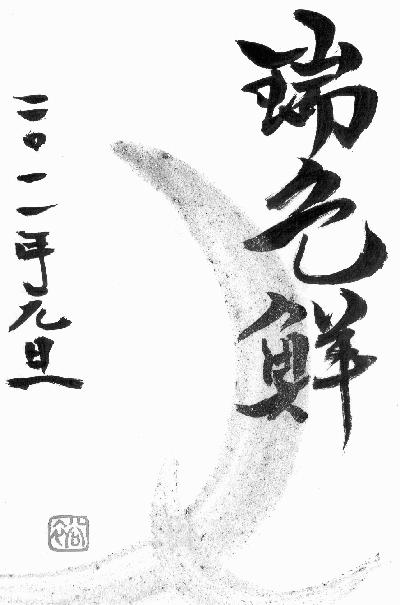 瑞色鮮
二〇一一年元旦
裕